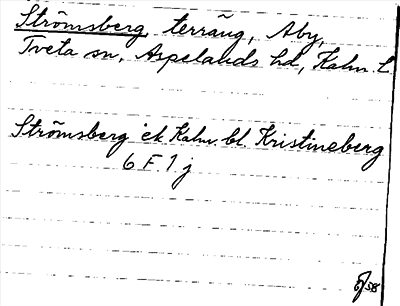 Strömsberg, terräng, Åby,
Tveta sn, Aspelands hd, Kalm. l.
Strömsberg ek. Kalm. bl. Kristineberg
6 F. 1 j